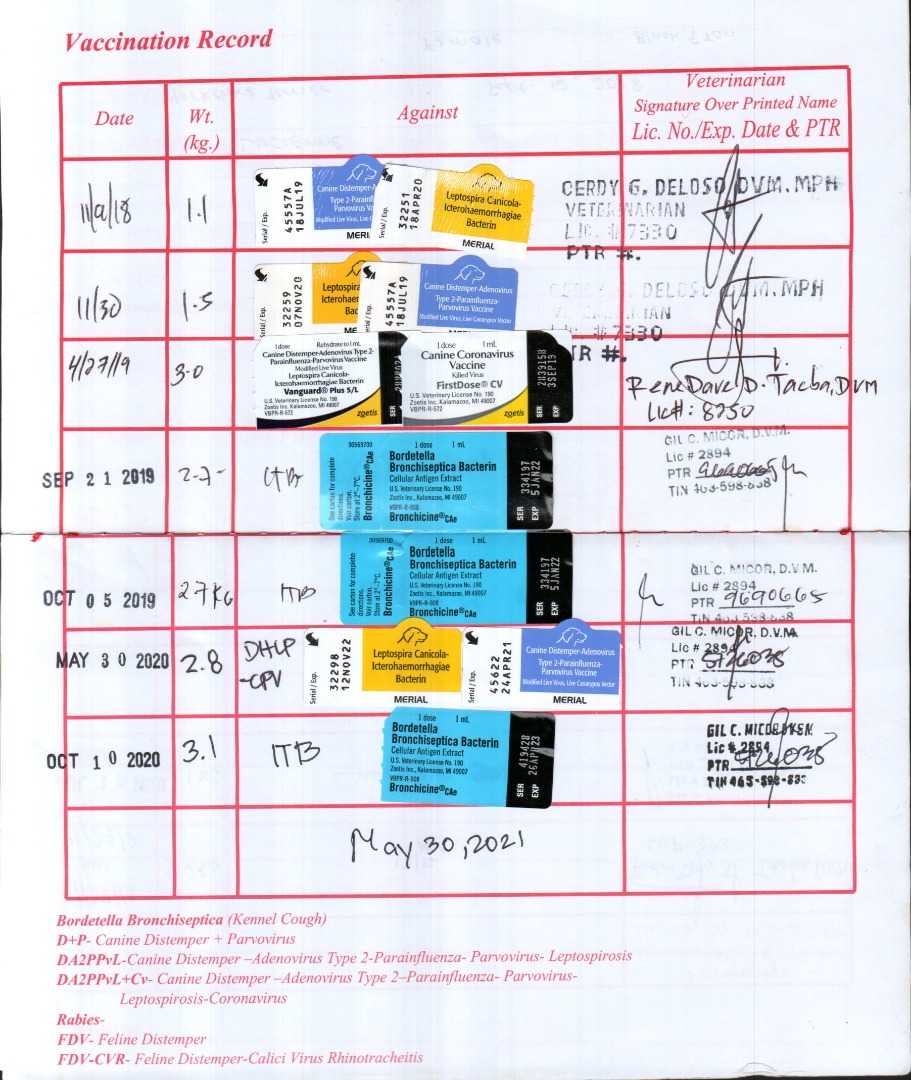 Vaccination Record
Date
Wt.
(kg.)
Against
Veterinarian
Signature Over Printed Name
Lic. No./Exp. Date & PTR
11/9/18
1.1
Serial / Exp.
45557A
18JUL19
Canine Distemper-A
Type 2-Parainfl
Parvovirus Va
Modified Live Virus, Live C
MERI
Serial / Exp.
32251
18APR20
Leptospira Canicola-
Icterohaemorrhagiae
Bacterin
MERIAL
GERDY G. DELOSO, DVM. MPH
VETERINARIAN
LIC. # 7330
PTR #.
11/30
1.5
Serial / Exp.
32259
07NOV20
Leptospira
Icterohaer
Bac
Serial / Exp.
45557A
18JUL19
Canine Distemper-Adenovirus
Type 2-Parainfluenza-
Parvovirus Vaccine
Modified Live Virus, Live Canarypox Vector
GERDY G. DELOSO DVM. MPH
VETERINARIAN
LIC. # 7330
TR #.
4/27/19
3.0
1 dose Rehydrate to 1 mL
Canine Distemper-Adenovirus Type 2-
Parainfluenza-Parvovirus Vaccine
Modified Live Virus
Leptospira Canicola-
Icterohaemorrhagiae Bacterin
Vanguard® Plus 5/L
U.S. Veterinary License No. 190
Zoetis Inc. Kalamazoo, MI 49007
VBPR-R-572
zoetis
SER
1 dose 1 mL
Canine Coronavirus
Vaccine
Killed Virus
FirstDose® CV
U.S. Veterinary License No. 190
Zoetis Inc., Kalamazoo, MI 49007
VBPR-R-572
zoetis
SER
EXP
Rene Dave D. Tacba, DVM
Lic#: 8250
SEP 21 2019
2.7
ITB
30569700
See carton for complete
directions.
Store at 2°-7°C.
Bronchicine®CAe
1 dose 1 mL
Bordetella
Bronchiseptica Bacterin
Cellular Antigen Extract
U.S. Veterinary License No. 190
Zoetis Inc., Kalamazoo, MI 49007
VBPR-R-908
Bronchicine®CAe
SER 334197
EXP 5JAN22
GIL C. MICOR, D.V.M.
Lic # 2894
PTR 9690665
TIN 463-598-838
OCT 05 2019
2.7 KG
ITB
30569700
See carton for complete
directions.
Store at 2°-7°C.
Bronchicine®CAe
1 dose 1 mL
Bordetella
Bronchiseptica Bacterin
Cellular Antigen Extract
U.S. Veterinary License No. 190
Zoetis Inc., Kalamazoo, MI 49007
VBPR-R-908
Bronchicine®CAe
SER 334197
EXP 5JAN22
GIL C. MICOR, D.V.M.
Lic # 2894
PTR 9690665
TIN 463-598-838
MAY 30 2020
2.8
DHLP
-CPV
Serial / Exp.
32298
12NOV22
Leptospira Canicola-
Icterohaemorrhagiae
Bacterin
MERIAL
Serial / Exp.
45622
24APR21
Canine Distemper-Adenovirus
Type 2-Parainfluenza-
Parvovirus Vaccine
Modified Live Virus, Live Canarypox Vector
MERIAL
GIL C. MICOR, D.V.M.
Lic # 2894
PTR
TIN 463-598-838
OCT 10 2020
3.1
ITB
1 dose 1 mL
Bordetella
Bronchiseptica Bacterin
Cellular Antigen Extract
U.S. Veterinary License No. 190
Zoetis Inc., Kalamazoo, MI 49007
VBPR-R-908
Bronchicine®CAe
SER 419428
EXP 26APR23
GIL C. MICOR
Lic # 2894
PTR
TIN 463-598-838
May 30, 2021
Bordetella Bronchiseptica (Kennel Cough)
D+P- Canine Distemper + Parvovirus
DA2PPvL-Canine Distemper –Adenovirus Type 2-Parainfluenza- Parvovirus- Leptospirosis
DA2PPvL+Cv- Canine Distemper –Adenovirus Type 2–Parainfluenza- Parvovirus-
Leptospirosis-Coronavirus
Rabies-
FDV- Feline Distemper
FDV-CVR- Feline Distemper-Calici Virus Rhinotracheitis